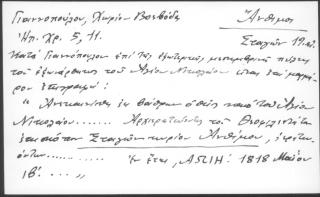 Γιαννοπούλου, Χωρίον Βουνόδα
Ἄνθιμος
Ἠπ. Χρ. 5, 11.
Σταγῶν 19 αἰ.
Κατά Γιαννόπουλον ἐπί τῆς ἐξωτερικῆς μεσημβρινῆς πλευρᾶς
τοῦ ἐξωνάρθηκος τοῦ Ἁγίου Νικολάου εἶναι ἐπί μαρμά-
ρου ἐπιγραφή:
" Ἀνεκαινίσθη ἐκ βάθρων ὁ θεῖος ναός τοῦ Ἁγίου
Νικολάου...... Ἀρχιερατεύοντος τοῦ Θεοφιλεστάτου
ἐπισκόπου Σταγῶν κυρίου Ἀνθίμου,
........ Ἐν ἔτει, ΑΩΙΗ: 1818 Μαΐου
ΙΒ'. .... "